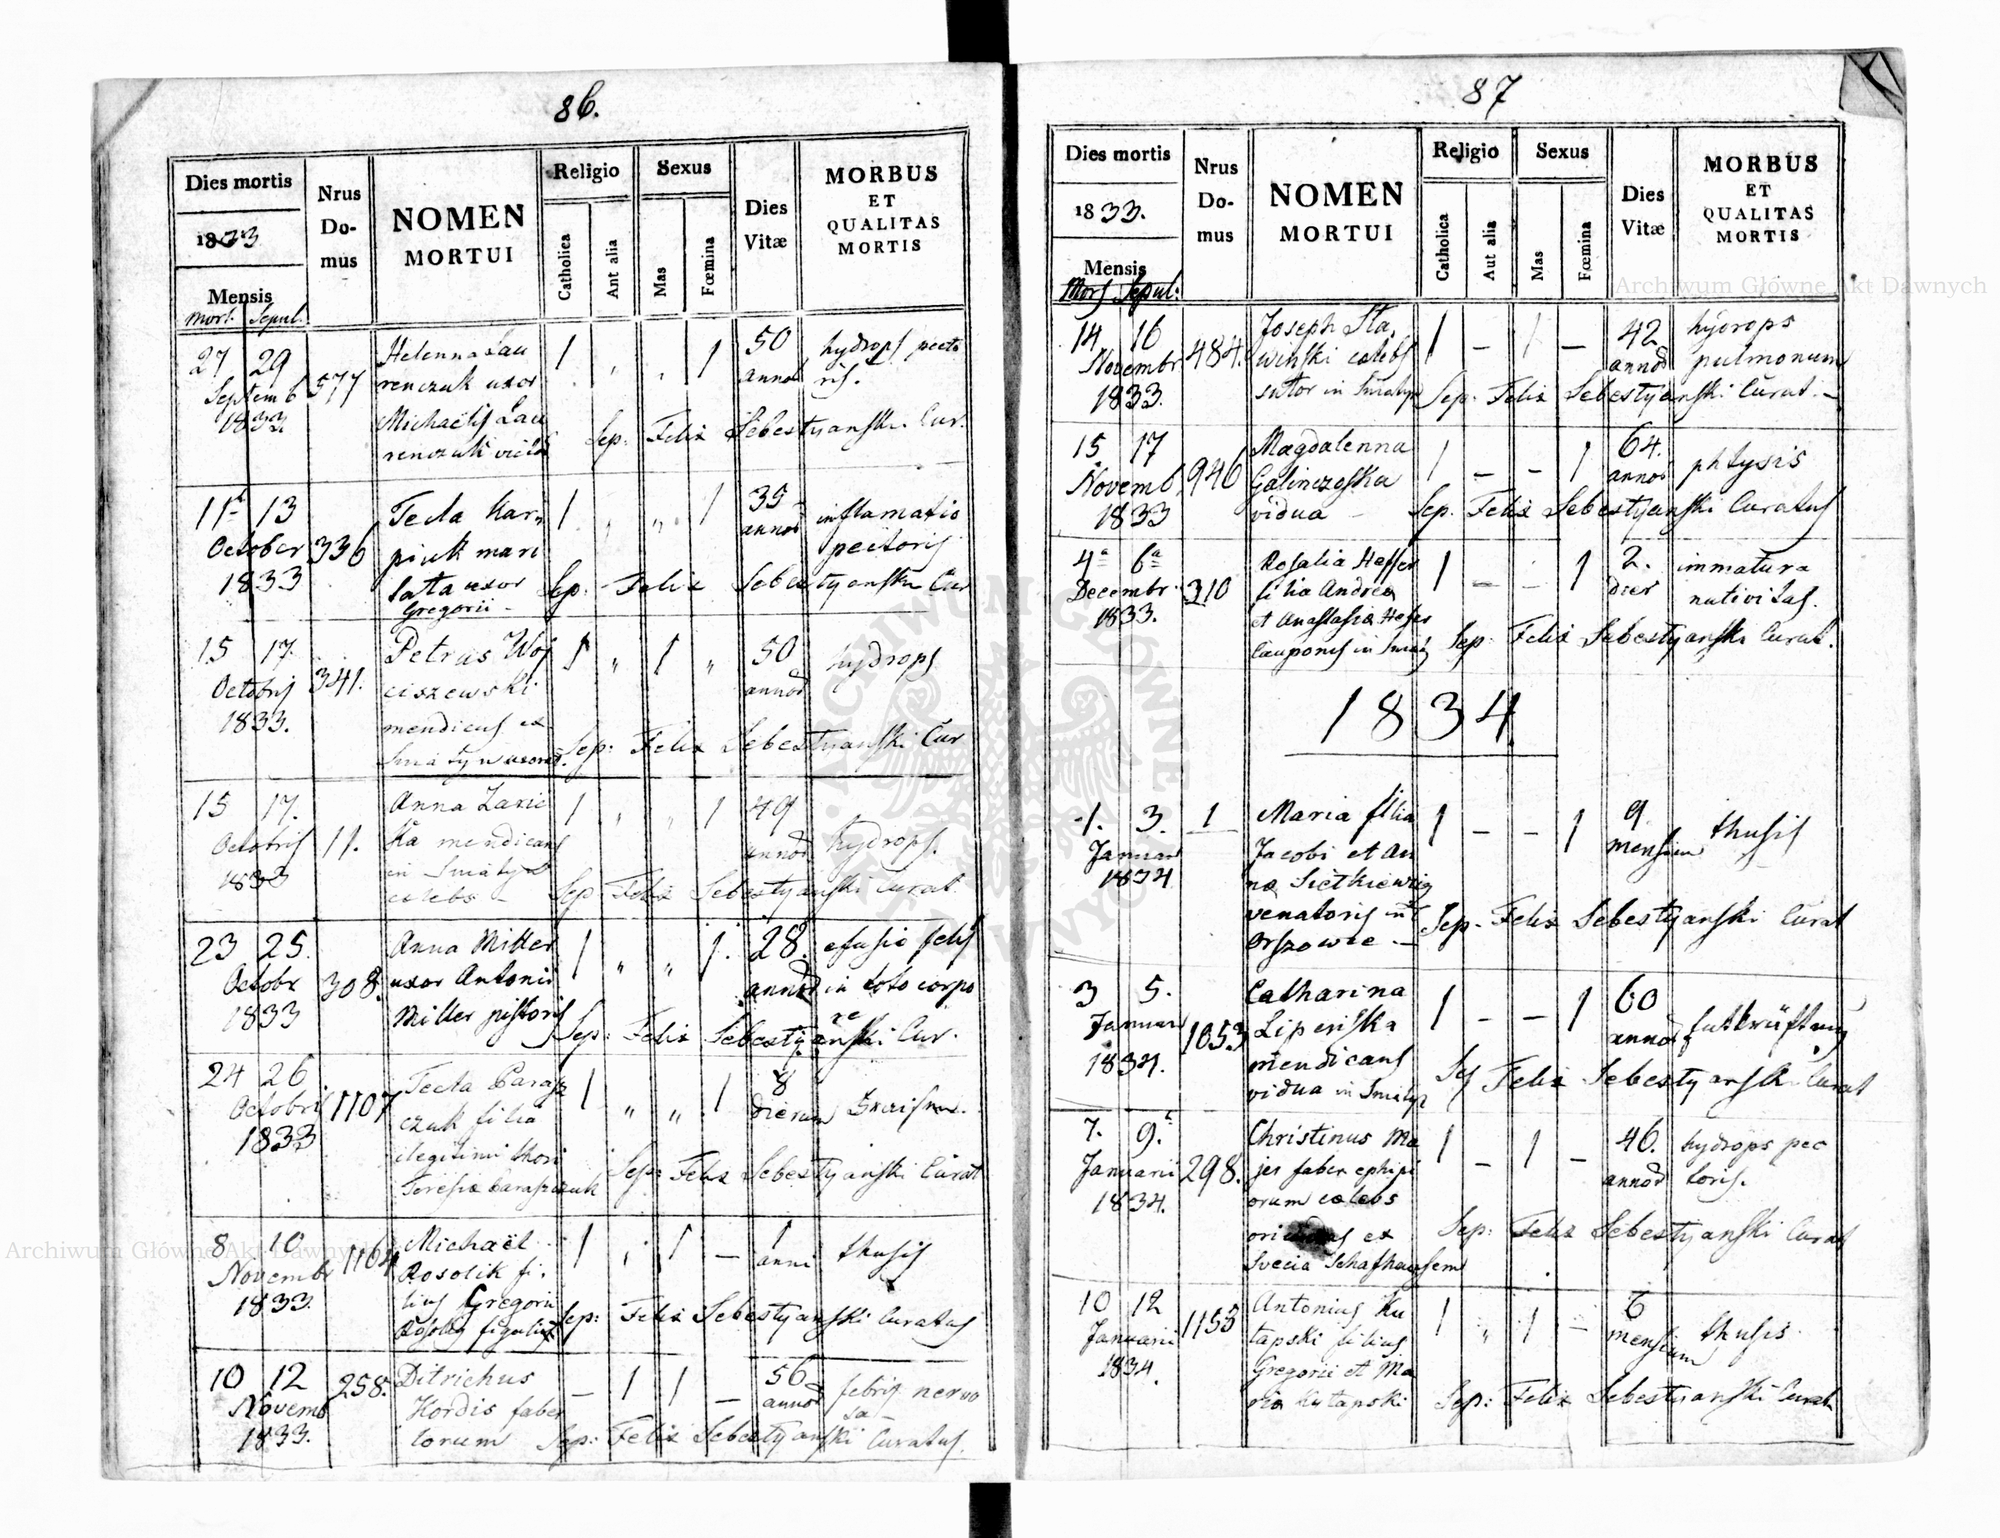 86.
Dies mortis
1833
Mensis
Mort. Sepul.
Nrus
Do-
mus
NOMEN
MORTUI
Religio
Catholica
Aut alia
Sexus
Mas
Fœmina
Dies
Vitæ
MORBUS
ET
QUALITAS
MORTIS
27 29
Septemb
1833.
577
Helenna Lau
renczuk uxor
Michaëlis Lau
renczuk
1 " " 1
50
annor
hydrops pecto
ris.
Sep: Felix Sebestyanski Cur.
11 13
October
1833
336
Tecla Kar
piuk mari
tata uxor
Gregorii -
1 " " 1
35
annor
inflamatio
pectoris
Sep: Felix Sebestyanski Cur
15 17.
Octobris
1833.
341.
Petrus Woj
ciszewski
mendicus ex
Sniatyn
1 " 1 "
50
annor
hydrops
Sep: Felix Sebestyanski Cur
15 17.
Octobris
1833
11.
Anna
ka mendicans
in Sniatyn
celebs -
1 " " 1
49
annor
hydrops.
Sep Felix Sebestyanski Curat.
23 25.
Octobr
1833
308.
Anna Miller
uxor Antonii
Miller pistoris
1 " " 1.
28.
annor
efusio felis
in toto corpo
re
Sep: Felix Sebestyanski Cur.
24 26
Octobris
1833
1107
Tecla Parasz
czuk filia
ilegitimi thori
Teresiæ Paraszczuk
1 " " 1
8
dierum
Sep: Felix Sebestyanski Curat
8 10
Novembr
1833.
1164
Michaël
Rosolik fi
lius Gregorii
1 " 1 –
1
anni
thusis
Sep: Felix Sebestyanski Curatus
10 12
Novemb
1833.
258.
Ditrichus
Hordis faber
lorum
– 1 1 –
56
annor
febris nervo
sa
Sep: Felix Sebestyanski Curatus.
87
Dies mortis
1833.
Mensis
Mors Sepul:
Nrus
Do-
mus
NOMEN
MORTUI
Religio
Catholica
Aut alia
Sexus
Mas
Fœmina
Dies
Vitæ
MORBUS
ET
QUALITAS
MORTIS
14 16
Novembr
1833.
484.
Joseph Sta
winski celebs
sutor in Sniatyn
1 – 1 –
42
annor
hydrops
pulmonum
Sep: Felix Sebestyanski Curat. –
15 17
Novemb
1833
946
Magdalenna
vidua –
1 – – 1
64.
annor
phtysis
Sep. Felix Sebestyanski Curatus
4ª 6ª
Decembr.
1833.
310
Rosalia Heffer
filia Andreæ
et Anastasiæ Heffer
Cauponis in Sniat
1 – – 1
2.
dier
immatura
nativitas.
Sep: Felix Sebestyanski Curat.
1834.
1. 3.
Januar
1834
1
Maria filia
Jacobi et An
næ Sietkiewicz
venatoris in
Orszowce. –
1 – – 1
9
mensium
thusis
Sep. Felix Sebestyanski Curat
3 5.
Januar
1834.
1053
Catharina
Lipenska
mendicans
vidua in Sniatyn
1 – – 1
60
annor
Entkräftung
Sep Felix Sebestyanski Curat
7. 9.
Januarii
1834.
298.
Christinus Ma
jer faber ephipi
orum celebs
ex
Svecia Schafhausem
1 – 1 –
46.
annor
hydrops pec
toris.
Sep: Felix Sebestyanski Curat
10 12
Januarii
1834.
1153
Antonius Ku
tapski filius
Gregorii et Ma
riæ Kutapski
1 " 1 –
6
mensium
thusis.
Sep: Felix Sebestyanski Curat
Archiwum Główne Akt Dawnych
Archiwum Główne Akt Dawnych
ARCHIWUM GŁÓWNE AKT DAWNYCH